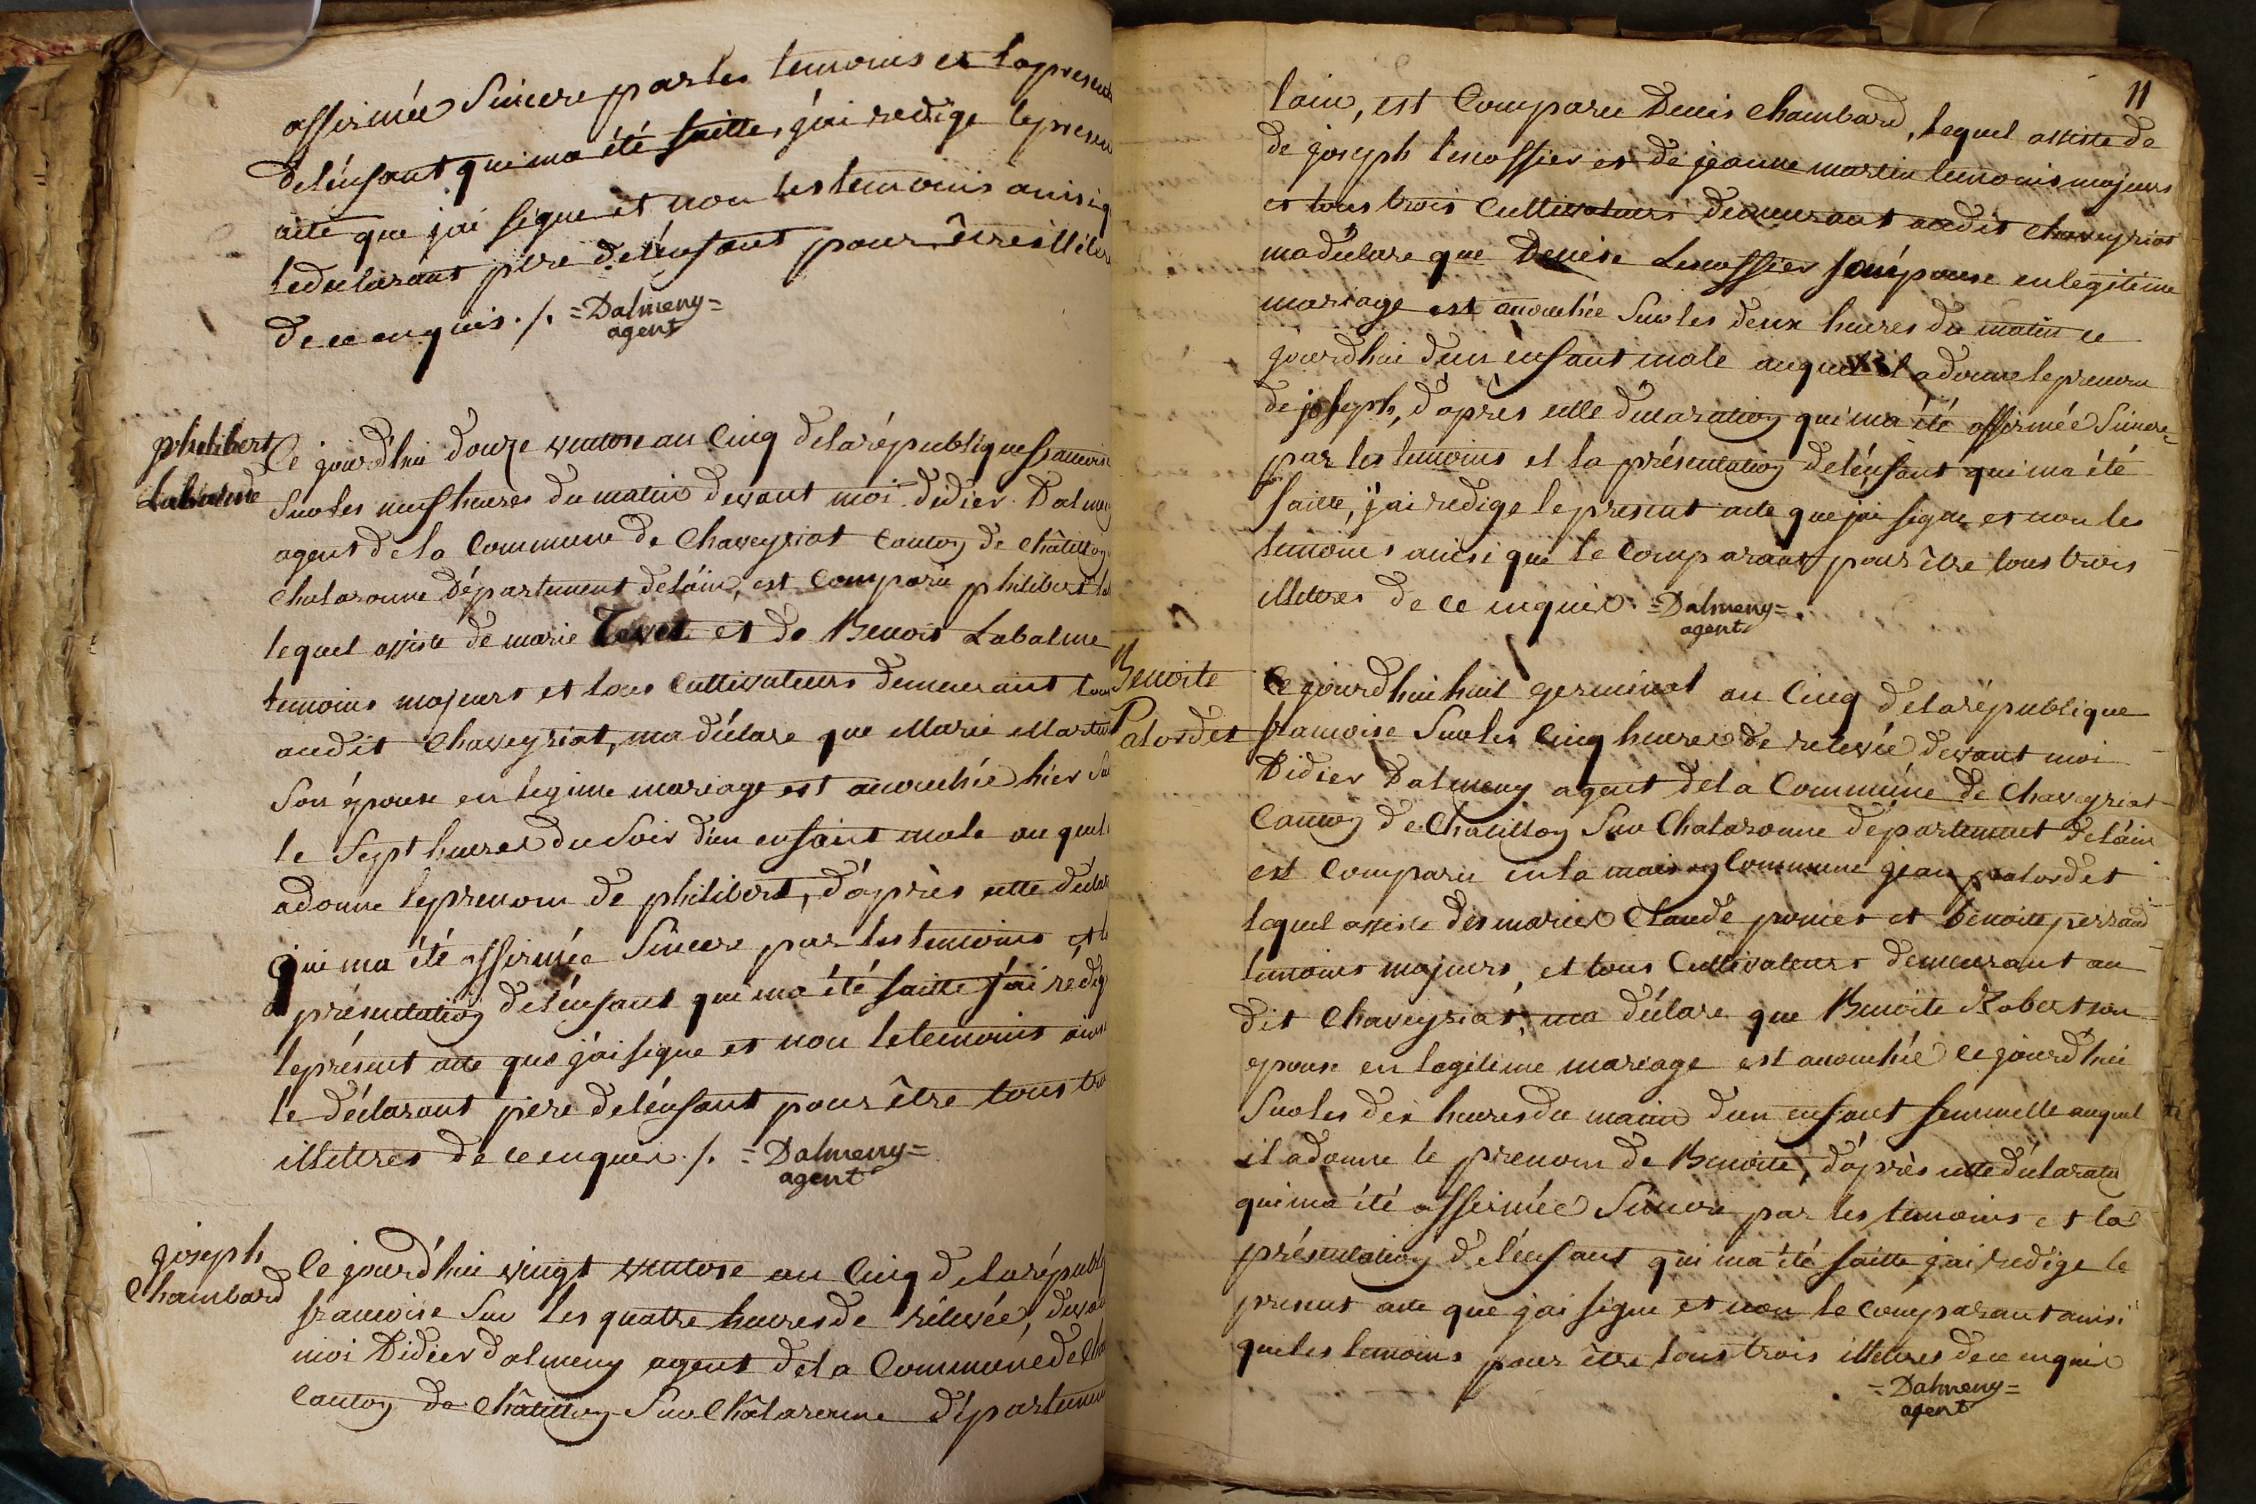 affirmée Sincere par les temoins et la present
de lénfant qui ma été faitte, j'ai redigé le presen
acte que j'ai signe et non les temoins ainsi q
le declarant pere de lénfant pour être illétre
de ce enquis ./. =Dalmeny=
agent
philibert
Labalme
Ce jourd'hui douze ventose an Cinq de la république francois
Sur les neuf heures du matin devant moi didier Dalmeny
agent de la Commune de Chaveyriat Canton de Châtillon
Chalaronne Département de láin, est Comparu philibert la
lequel assisté de marie Tevet et de Benoit Labalme
temoins majeurs et tous Cultivateurs demeurant tous
audit Chaveyriat, ma déclare que Marie Martin
Son épouse en legime mariage est accouchée hier Sur
le Sept heures du Soir d'un enfant male au quel
a donne le prenom de philibert, d'après cette déclar
qui ma été affirmée Sincere par les temoins et l
présentation de lénfant qui ma été faitte j'ai rédig
le présent acte que j'ai signe et non le temoins ains
le déclarant pere de lénfant pour être tous tro
illettres de ce enquis ./. =Dalmeny=
agent
joseph
Chambard
Ce jourd'hui vingt ventose an Cinq de la républ
francoise Sur les quatre heures de rélevée, deva
moi Didier dalmeny agent de la Commune de Cha
Canton de Châtillon Sur Châlaronne départemen
11
lain, est Comparu Denis Chambard, lequel assiste de
de joseph et de jeanne martin temoins majeurs
et tous trois Cultivateurs demeurant audit Chaveyriat
ma déclare que Denise Son épouse en legitime
mariage est accouchée Sur les deux heures du matin ce
jourd'hui d'un enfant male auquel il a donne le prenom
de joseph, d'apres cette declaration qui ma été affirmée Sincere
par les temoins et la présentation de lénfant qui ma été
faitte, j'ai redige le present acte que j'ai signe et non les
temoins ainsi que le Comparant pour être tous trois
illettres de ce enquis. =Dalmeny=.
agent
Benoite
Palordet
Ce jourd'hui huit germinal an Cinq de la république
francoise Sur les Cinq heures de relevée devant moi
Didier Dalmeny agent de la Commune de Chaveyriat
Canton de Chatillon Sur Chalaronne département de láin
est Comparu en la maison Commune jean palordet
lequel assiste des mariés Claude et benoite perraud
temoins majeurs, et tous Cultivateurs demeurant au
dit Chaveyriat, ma déclare que Benoite Robert son
epouse en legitime mariage est accouchée ce jourd'hui
Sur les dix heures du matin d'un enfant femmelle auquel
il a donne le prenom de Benoite, d'après cette déclaration
qui ma été affirmée Sincere par les temoins et la
présentation de lénfant qui ma été faitte j'ai redige le
present acte que j'ai signe et non le comparant ainsi
que les temoins pour être tous trois illettres de ce enquis
=Dalmeny=
agent